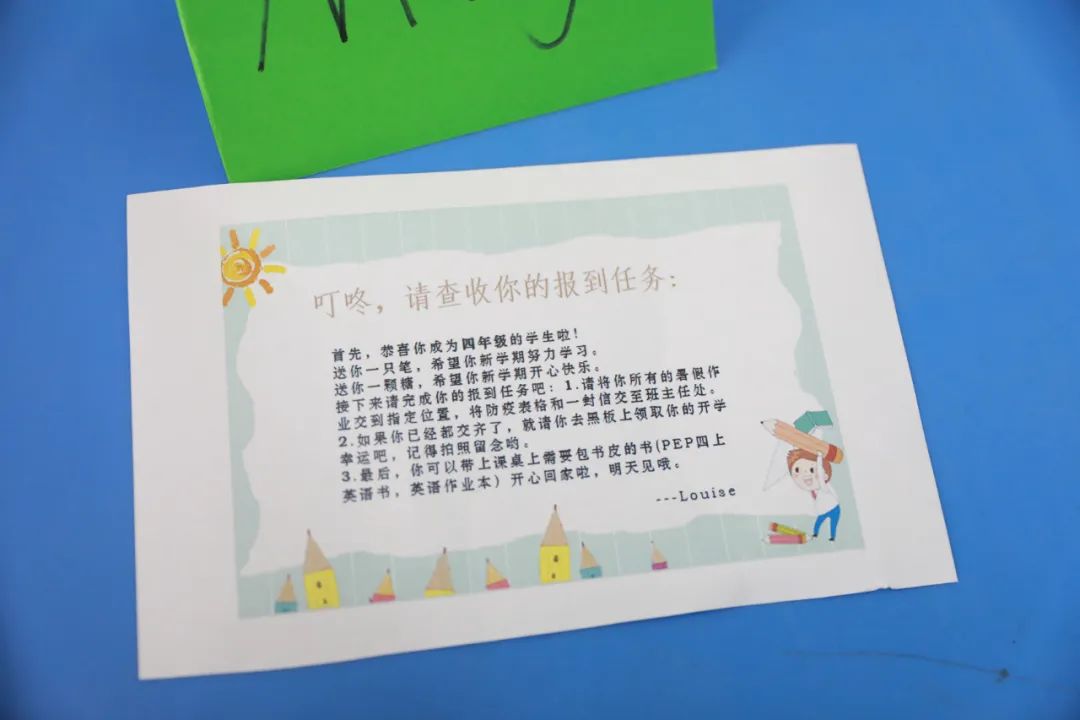 叮咚，请查收你的报到任务：
首先，恭喜你成为四年级的学生啦！
送你一只笔，希望你新学期努力学习。
送你一颗糖，希望你新学期开心快乐。
接下来请完成你的报到任务吧：1.请将你所有的暑假作
业交到指定位置，将防疫表格和一封信交至班主任处。
2.如果你已经都交齐了，就请你去黑板上领取你的开学
幸运吧，记得拍照留念哟。
3.最后，你可以带上课桌上需要包书皮的书(PEP四上
英语书，英语作业本）开心回家啦，明天见哦。
---Louise